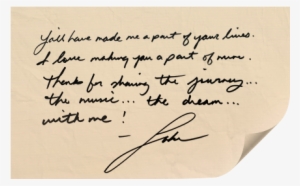 Y'all have made me a part of your lives.
I love making you a part of mine.
Thanks for sharing the journey...
the music... the dream...
with me!
— John